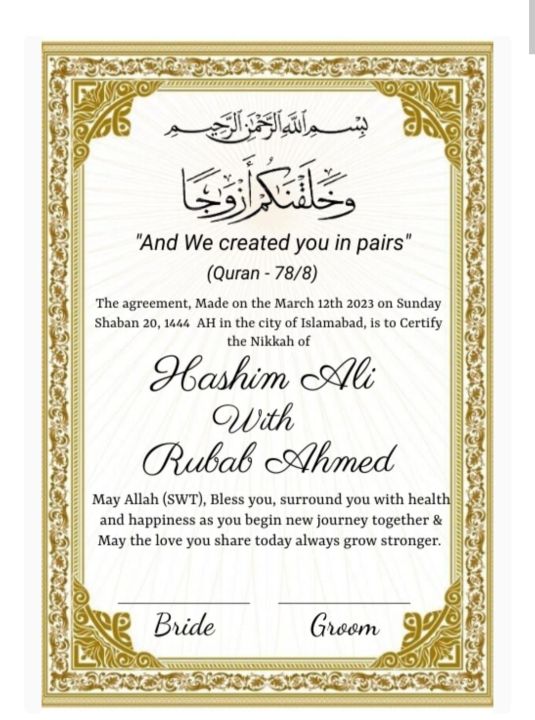 بِسْمِ اللَّهِ الرَّحْمَٰنِ الرَّحِيمِ
وَخَلَقْنَاكُمْ أَزْوَاجًا
"And We created you in pairs"
(Quran - 78/8)
The agreement, Made on the March 12th 2023 on Sunday
Shaban 20, 1444 AH in the city of Islamabad, is to Certify
the Nikkah of
Hashim Ali
With
Rubab Ahmed
May Allah (SWT), Bless you, surround you with health
and happiness as you begin new journey together &
May the love you share today always grow stronger.
Bride Groom